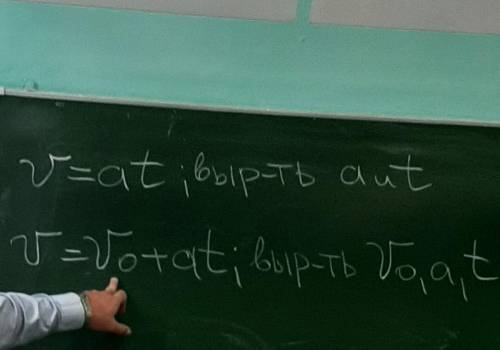 v=at; выр-ть a и t
v=v₀+at; выр-ть v₀, a, t